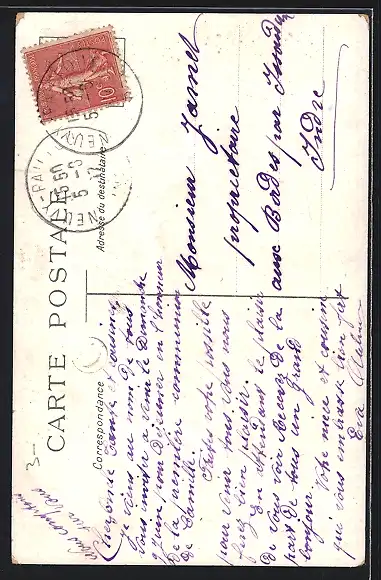 CARTE POSTALE
Correspondance
Adresse du destinataire
Monsieur Jamet
propriétaire
aux Bordes par Issoudun
Indre
je viens au nom de tous
vous inviter a venir le dimanche
juin pour déjeuner en l'honneur
de la première communion
de Camille.
Faites votre possible
pour venir tous. Vous nous
ferez bien plaisir.
En attendant le plaisir
de vous voir recevez de la
part de tous un grand
bonjour
Votre niece et cousine
qui vous embrasse bien fort
Eva
10
3-